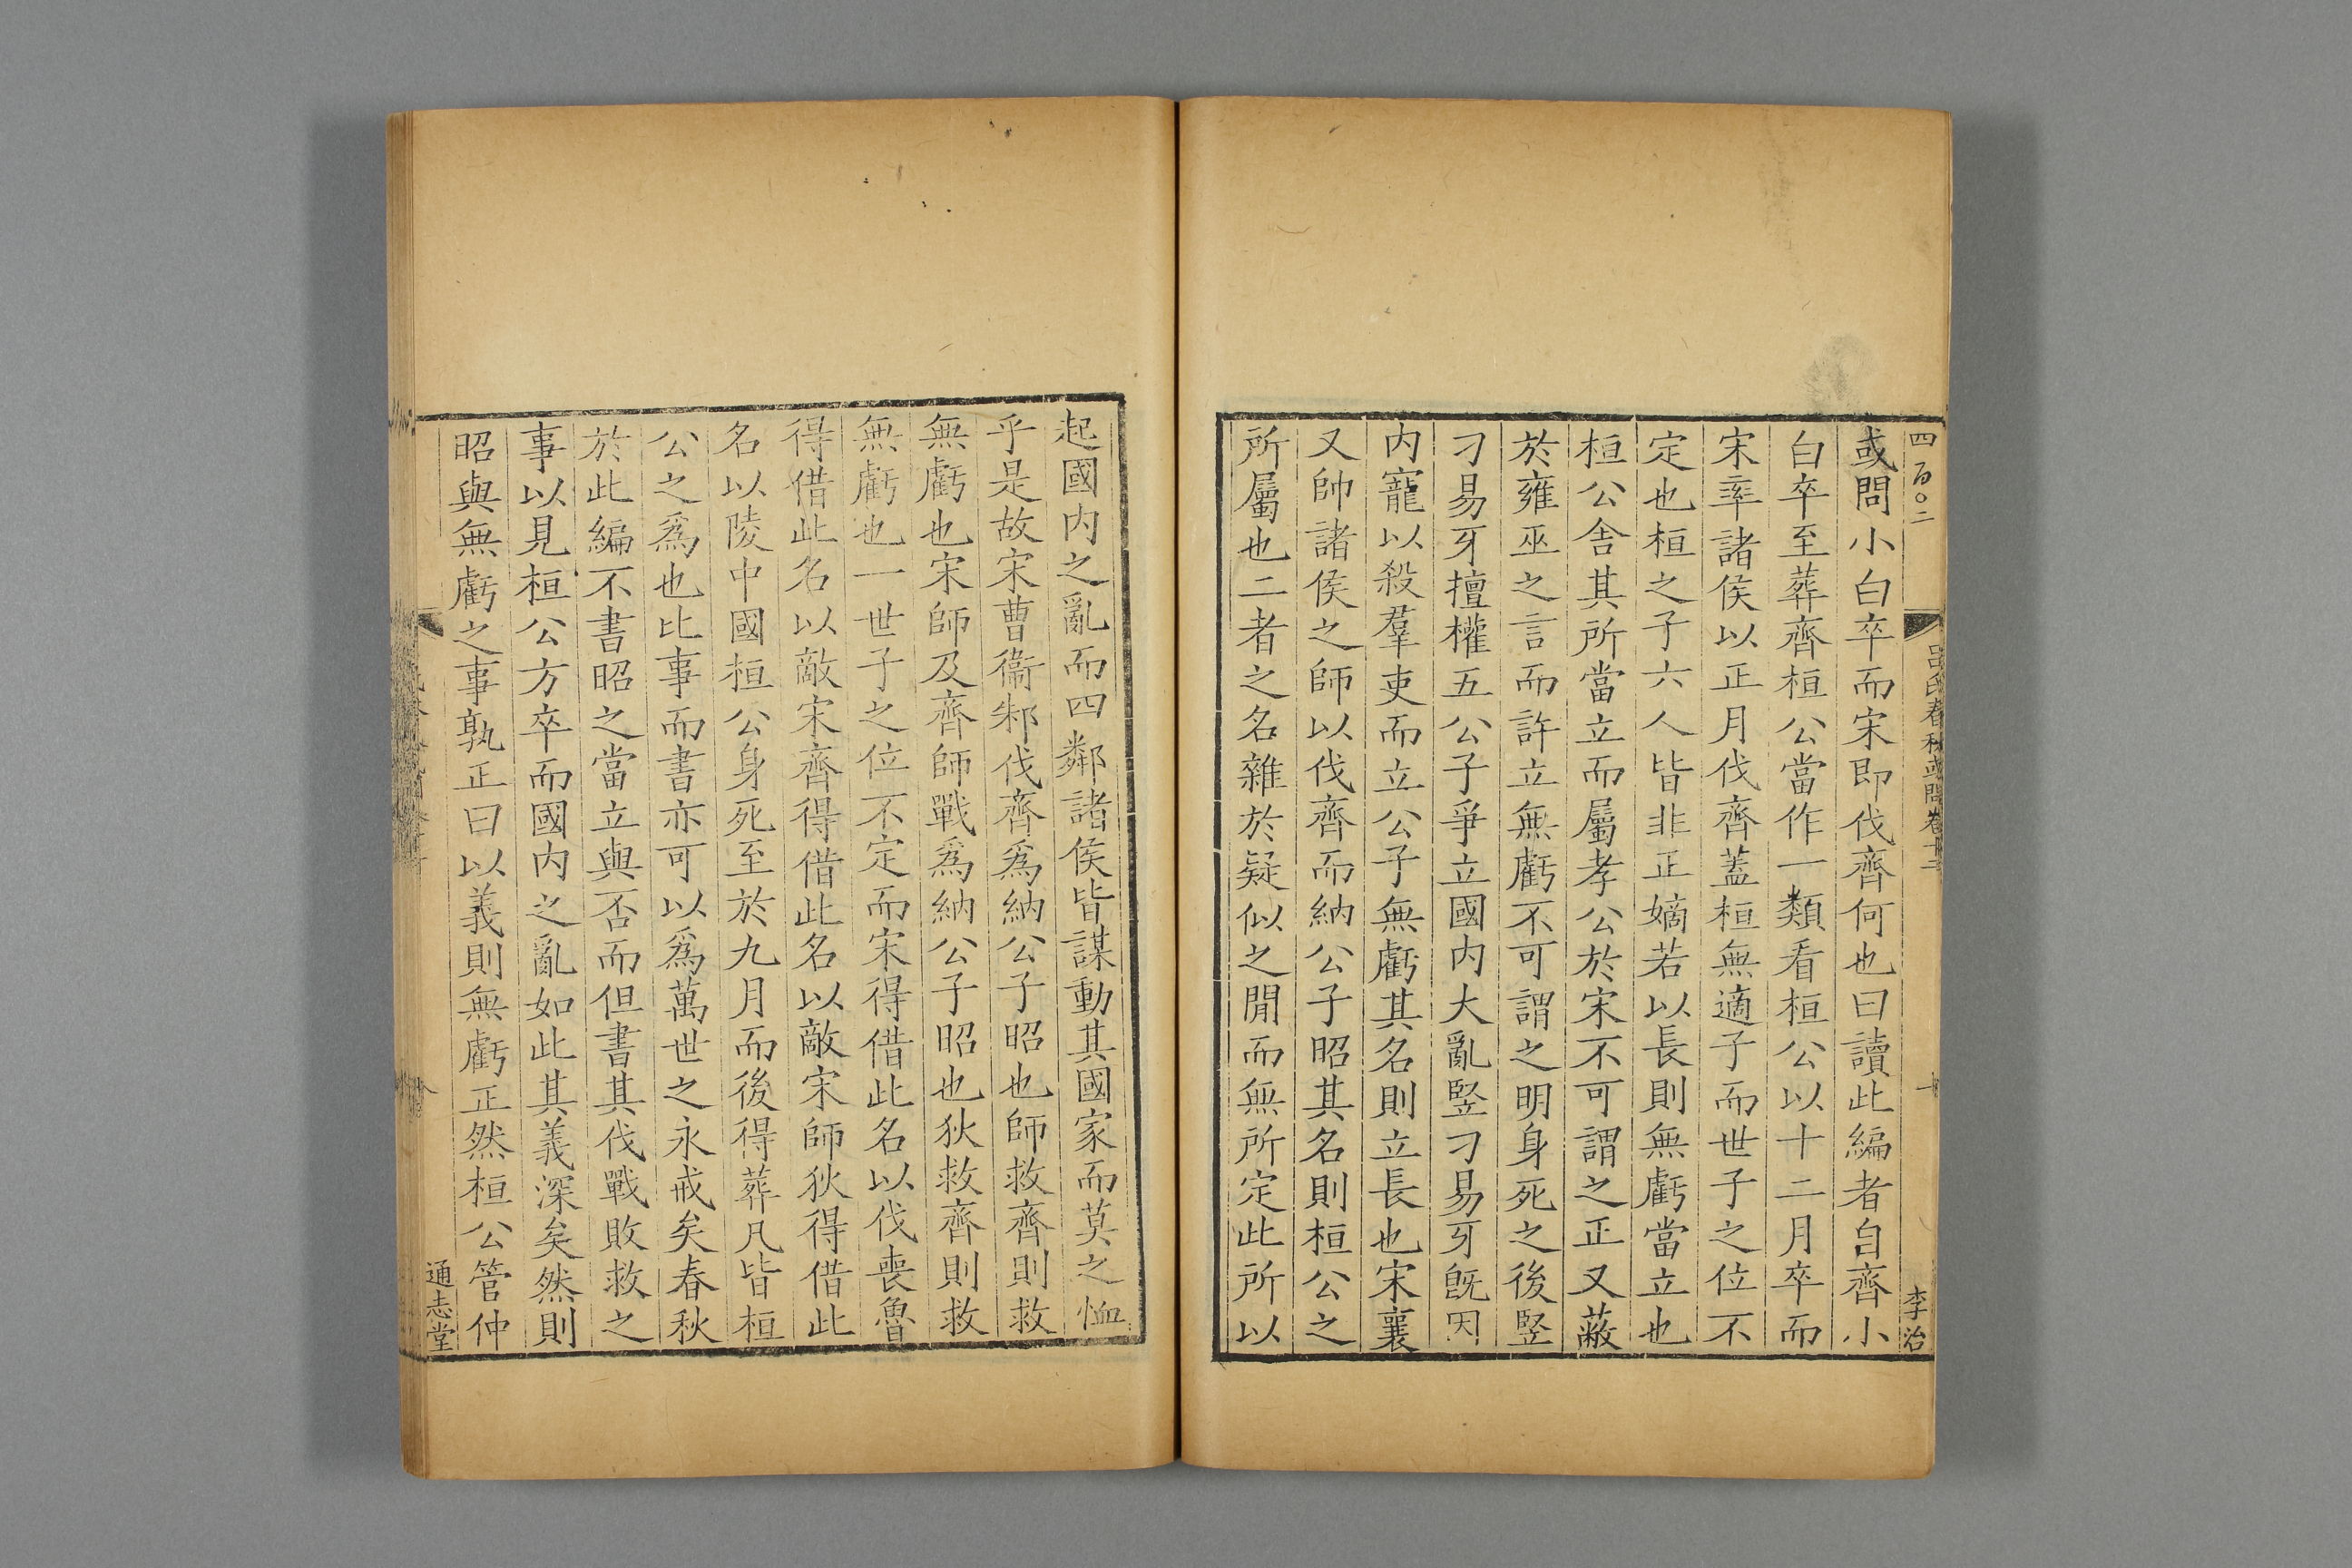 四百〇二
呂氏春秋或問卷十二
十
李治
或問小白卒而宋即伐齊何也曰讀此編者自齊小
白卒至葬齊桓公當作一類看桓公以十二月卒而
宋率諸侯以正月伐齊蓋桓無適子而世子之位不
定也桓之子六人皆非正嫡若以長則無虧當立也
桓公舍其所當立而屬孝公於宋不可謂之正又蔽
於雍巫之言而許立無虧不可謂之明身死之後竪
刁易牙擅權五公子爭立國内大亂竪刁易牙旣因
内寵以殺羣吏而立公子無虧其名則立長也宋襄
又帥諸侯之師以伐齊而納公子昭其名則桓公之
所屬也二者之名雜於疑似之閒而無所定此所以
起國内之亂而四鄰諸侯皆謀動其國家而莫之恤
乎是故宋曹衞邾伐齊爲納公子昭也師救齊則救
無虧也宋師及齊師戰爲納公子昭也狄救齊則救
無虧也一世子之位不定而宋得借此名以伐喪魯
得借此名以敵宋齊得借此名以敵宋師狄得借此
名以陵中國桓公身死至於九月而後得葬凡皆桓
公之爲也比事而書亦可以爲萬世之永戒矣春秋
於此編不書昭之當立與否而但書其伐戰敗救之
事以見桓公方卒而國内之亂如此其義深矣然則
昭與無虧之事孰正曰以義則無虧正然桓公管仲
通志堂